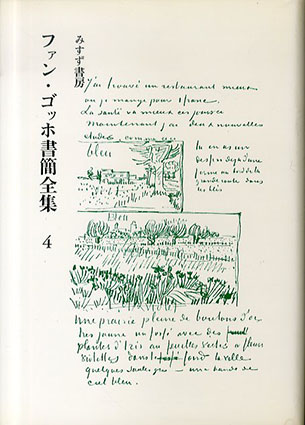 ファン・ゴッホ書簡全集 4
みすず書房
J'ai trouvé un restaurant mieux
où je mange pour 1 franc.
La santé va mieux ces jours ci
Maintenant j'ai deux nouvelles
études comme ceci
bleu
tu en as un
dessin déjà d'une
ferme au bord de la
grande route dans
les blés
Bleu
Une prairie pleine de boutons d'or
très jaune un fossé avec des
plantes d'Iris aux feuilles vertes à fleurs
violettes dans le fond la ville
quelques saules gris – une bande de
ciel bleu.